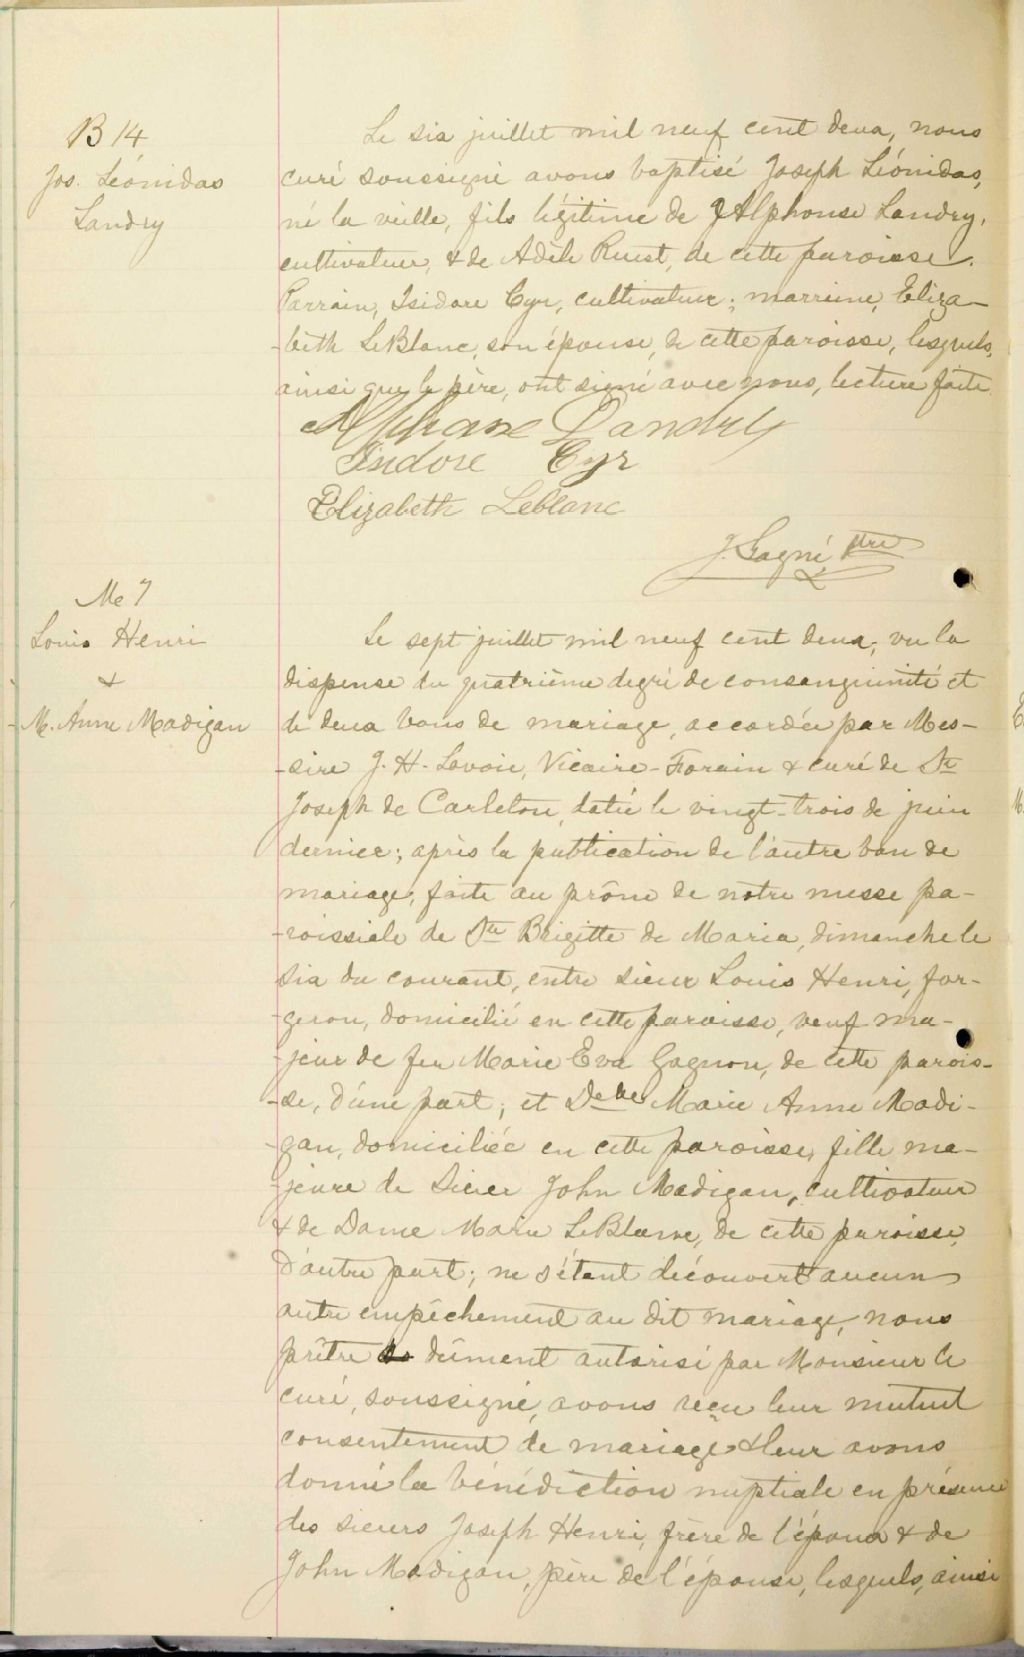 B 14
Jos. Léonidas
Landry
Le six juillet mil neuf cent deux, nous
curé soussigné avons baptisé Joseph Léonidas,
né la veille, fils légitime de J Alphonse Landry,
cultivateur, & de Adèle Ruest, de cette paroisse.
Parrain, Isidore Cyr, cultivateur; marraine, Eliza-
-beth LeBlanc, son épouse, de cette paroisse, lesquels,
ainsi que le père, ont signé avec nous, lecture faite.
Alphonse Landry
Isidore Cyr
Elizabeth Leblanc
J. Gagné, ptre
M 7
Louis Henri
&
M. Anne Madigan
Le sept juillet mil neuf cent deux, vu la
dispense du quatrième degré de consanguinité et
de deux bans de mariage, accordée par Mes-
-sire J. H. Lavoie, Vicaire-Forain & curé de St
Joseph de Carleton, datée le vingt-trois de juin
dernier; après la publication de l'autre ban de
mariage, faite au prône de notre messe pa-
-roissiale de Ste Brigitte de Maria, dimanche le
six du courant, entre sieur Louis Henri, for-
-geron, domicilié en cette paroisse, veuf ma-
-jeur de feu Marie Eva Gagnon, de cette parois-
-se, d'une part; et Delle Marie Anne Madi-
-gan, domiciliée en cette paroisse, fille ma-
-jeure de Sieur John Madigan, cultivateur
& de Dame Marie LeBlanc, de cette paroisse,
d'autre part; ne s'étant découvert aucun
autre empêchement au dit mariage, nous
prêtre dûment autorisé par Monsieur le
curé, soussigné, avons reçu leur mutuel
consentement de mariage & leur avons
donné la bénédiction nuptiale en présence
des sieurs Joseph Henri, frère de l'époux & de
John Madigan, père de l'épouse, lesquels, ainsi